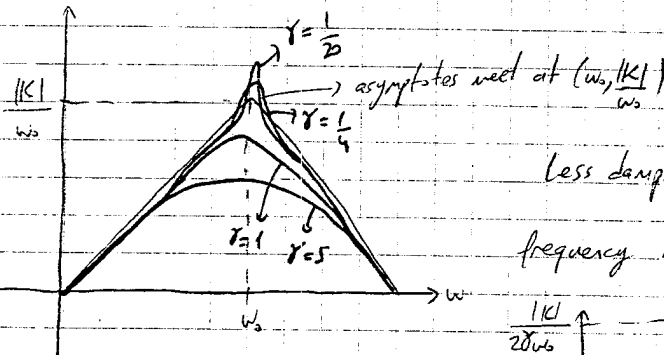 γ = 1/20
|K|/ω₀
asymptotes meet at (ω₀, |K|/ω₀)
γ = 1/4
Less damp
γ = 1
γ = 5
frequency
ω
ω₀
|K|/2γω₀